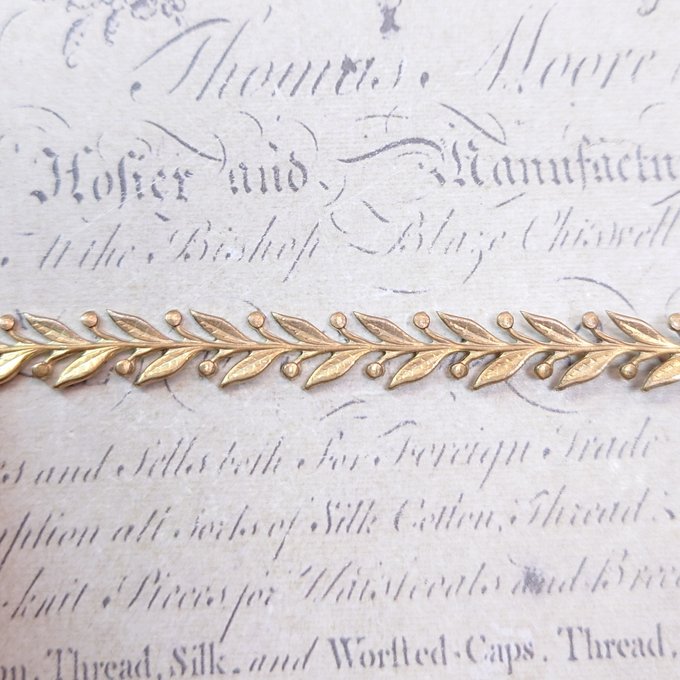 Thomas Moore
Hoſier and Manufactu
the Bishop Blaze Chiswell
s and Sells both For Foreign Trade
mption all Sorts of Silk Cotton, Thread &
knit Pieces for Waistcoats and Bree
on, Thread, Silk, and Worſted-Caps, Thread,